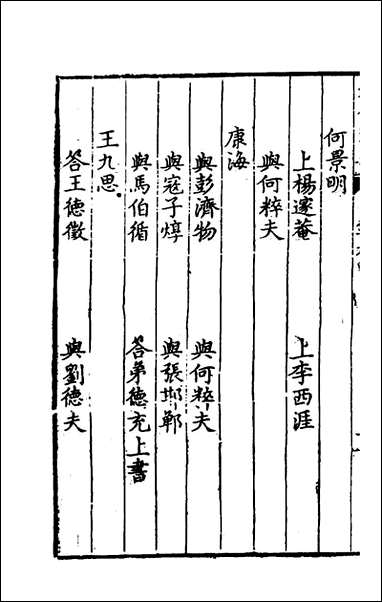 何景明
上楊邃菴　上李西涯
與何粹夫
康海
與彭濟物　與何粹夫
與寇子惇　與張邯鄲
與馬伯循　答弟德充上書
王九思
答王德徵　與劉德夫